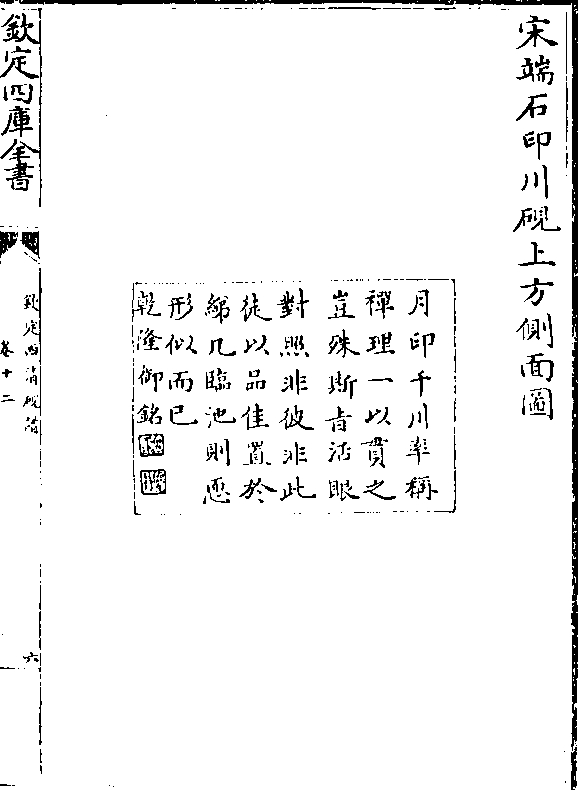 宋端石印川硯上方側面圖
月印千川率稱
禪理一以貫之
豈殊斯旨活眼
對照非彼非此
徒以品佳置於
綈几臨池則恧
形似而已
乾隆御銘
欽定四庫全書
欽定西清硯譜
卷十二
六